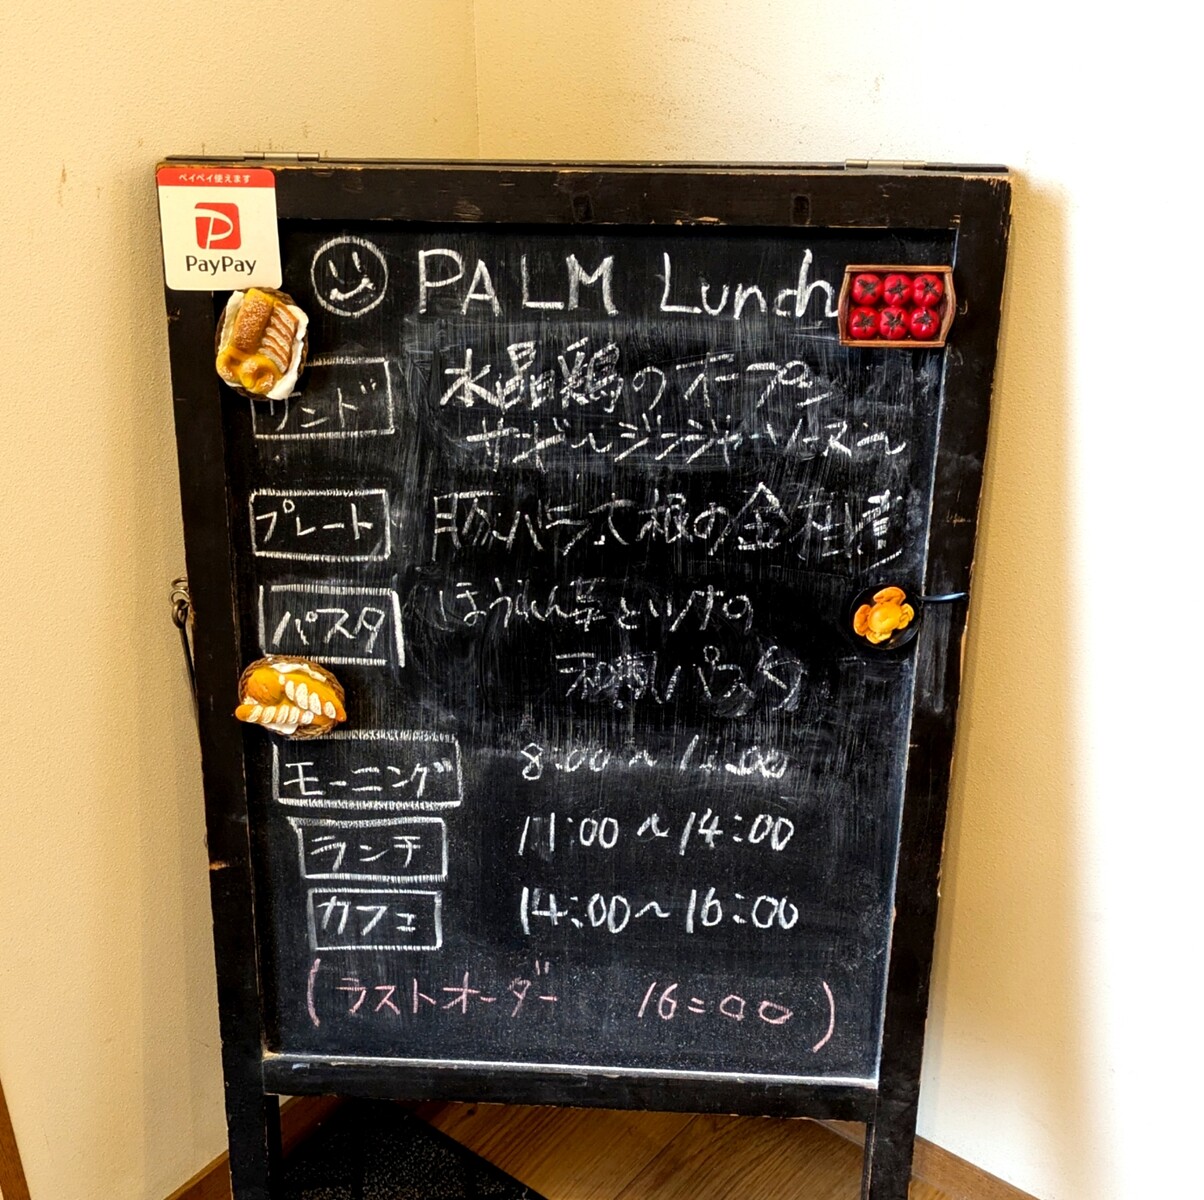 ペイペイ使えます
PayPay
PALM Lunch
サンド 水晶鶏のオープン
サンド～ジンジャーソース～
プレート 豚バラ大根の金柑煮
パスタ ほうれん草とツナの
和風パスタ
モーニング 8:00～
ランチ 11:00～14:00
カフェ 14:00～16:00
(ラストオーダー 16:00)